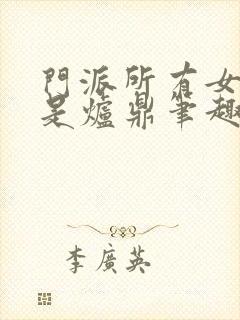 門派所有女
是爐鼎筆趣
李廣英